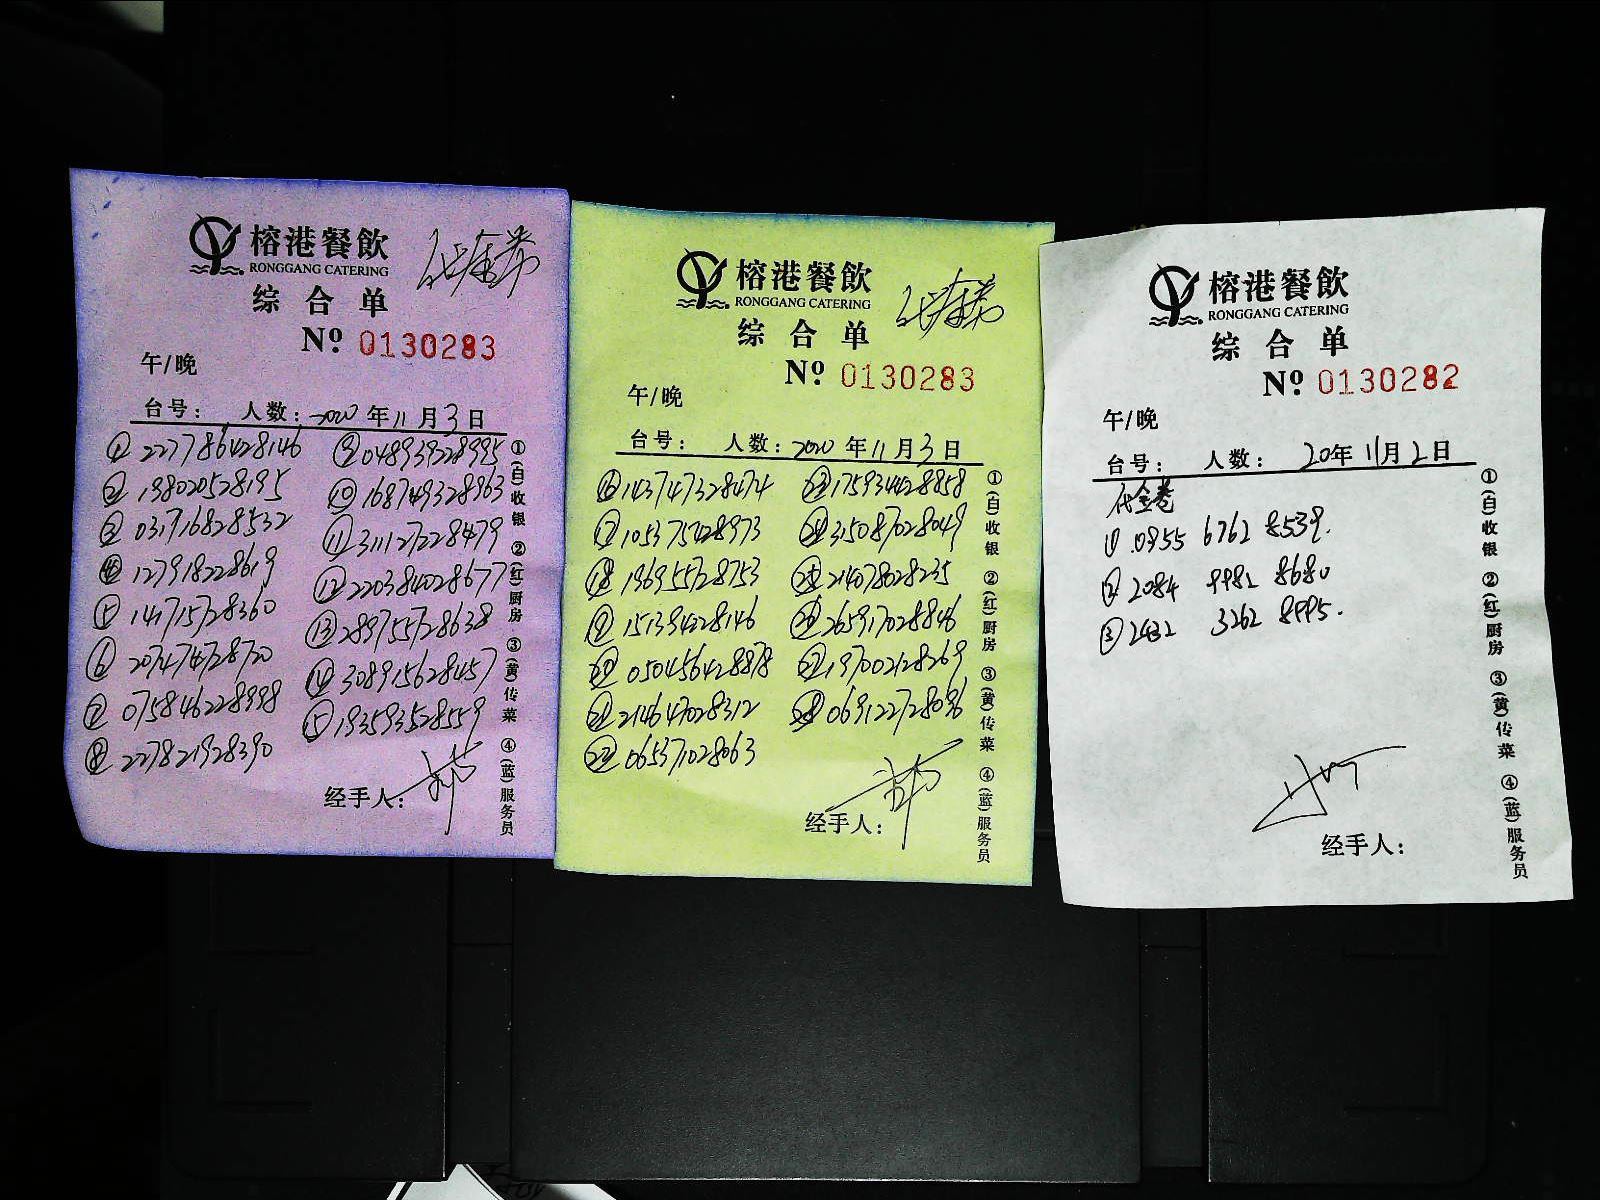 榕港餐飲
RONGGANG CATERING
代金券
综合单
Nº 0130283
午/晚
台号： 人数：2020年11月3日
① 227786428146
② 198020528195
③ 031716828532
④ 127918228619
⑤ 141715728360
⑥ 207474728720
⑦ 075846228998
⑧ 227821928390
⑨ 048939228995
⑩ 168749328963
⑪ 311127228479
⑫ 220384028677
⑬ 289755728638
⑭ 308915628457
⑮ 193593528559
经手人：
①(白)收银 ②(红)厨房 ③(黄)传菜 ④(蓝)服务员
榕港餐飲
RONGGANG CATERING
代金券
综合单
Nº 0130283
午/晚
台号： 人数：2020年11月3日
⑯ 143747328474
⑰ 105375428973
⑱ 196955728753
⑲ 151394228146
⑳ 050456428878
㉑ 214647028312
㉒ 065371028063
㉓ 175934428858
㉔ 315087028049
㉕ 214078028235
㉖ 265917028846
㉗ 197002128269
㉘ 069122728096
经手人：
①(白)收银 ②(红)厨房 ③(黄)传菜 ④(蓝)服务员
榕港餐飲
RONGGANG CATERING
综合单
Nº 0130282
午/晚
台号： 人数： 20年11月2日
代金卷
① 0955 6762 8539.
② 2084 9982 8680
③ 2432 3262 8995.
经手人：
①(白)收银 ②(红)厨房 ③(黄)传菜 ④(蓝)服务员